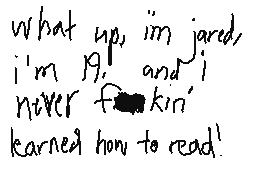 what up, i'm jared,
i'm 19, and i
never f kin'
learned how to read!